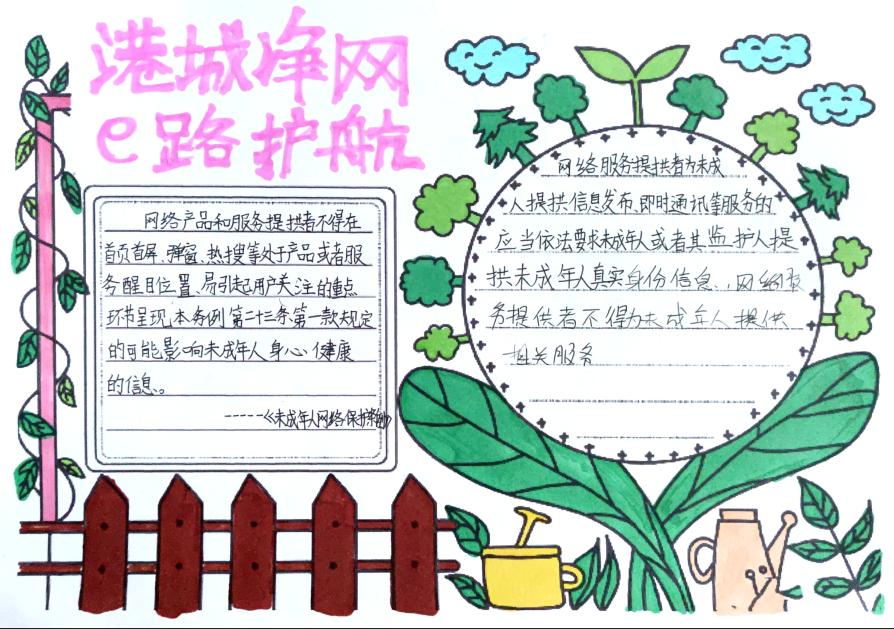 港城净网
e路护航
网络产品和服务提拱者不得在
首页首屏、弹窗、热搜等处于产品或者服
务醒目位置、易引起用户关注的重点
环节呈现本条例第二十三条第一款规定
的可能影响未成年人身心健康
的信息。
-----《未成年人网络保护条例》
网络服务提拱者为未成
人提拱信息发布、即时通讯等服务的
应当依法要求未成年人或者其监护人提
拱未成年人真实身份信息、,网络服
务提供者不得为未成年人提供
相关服务